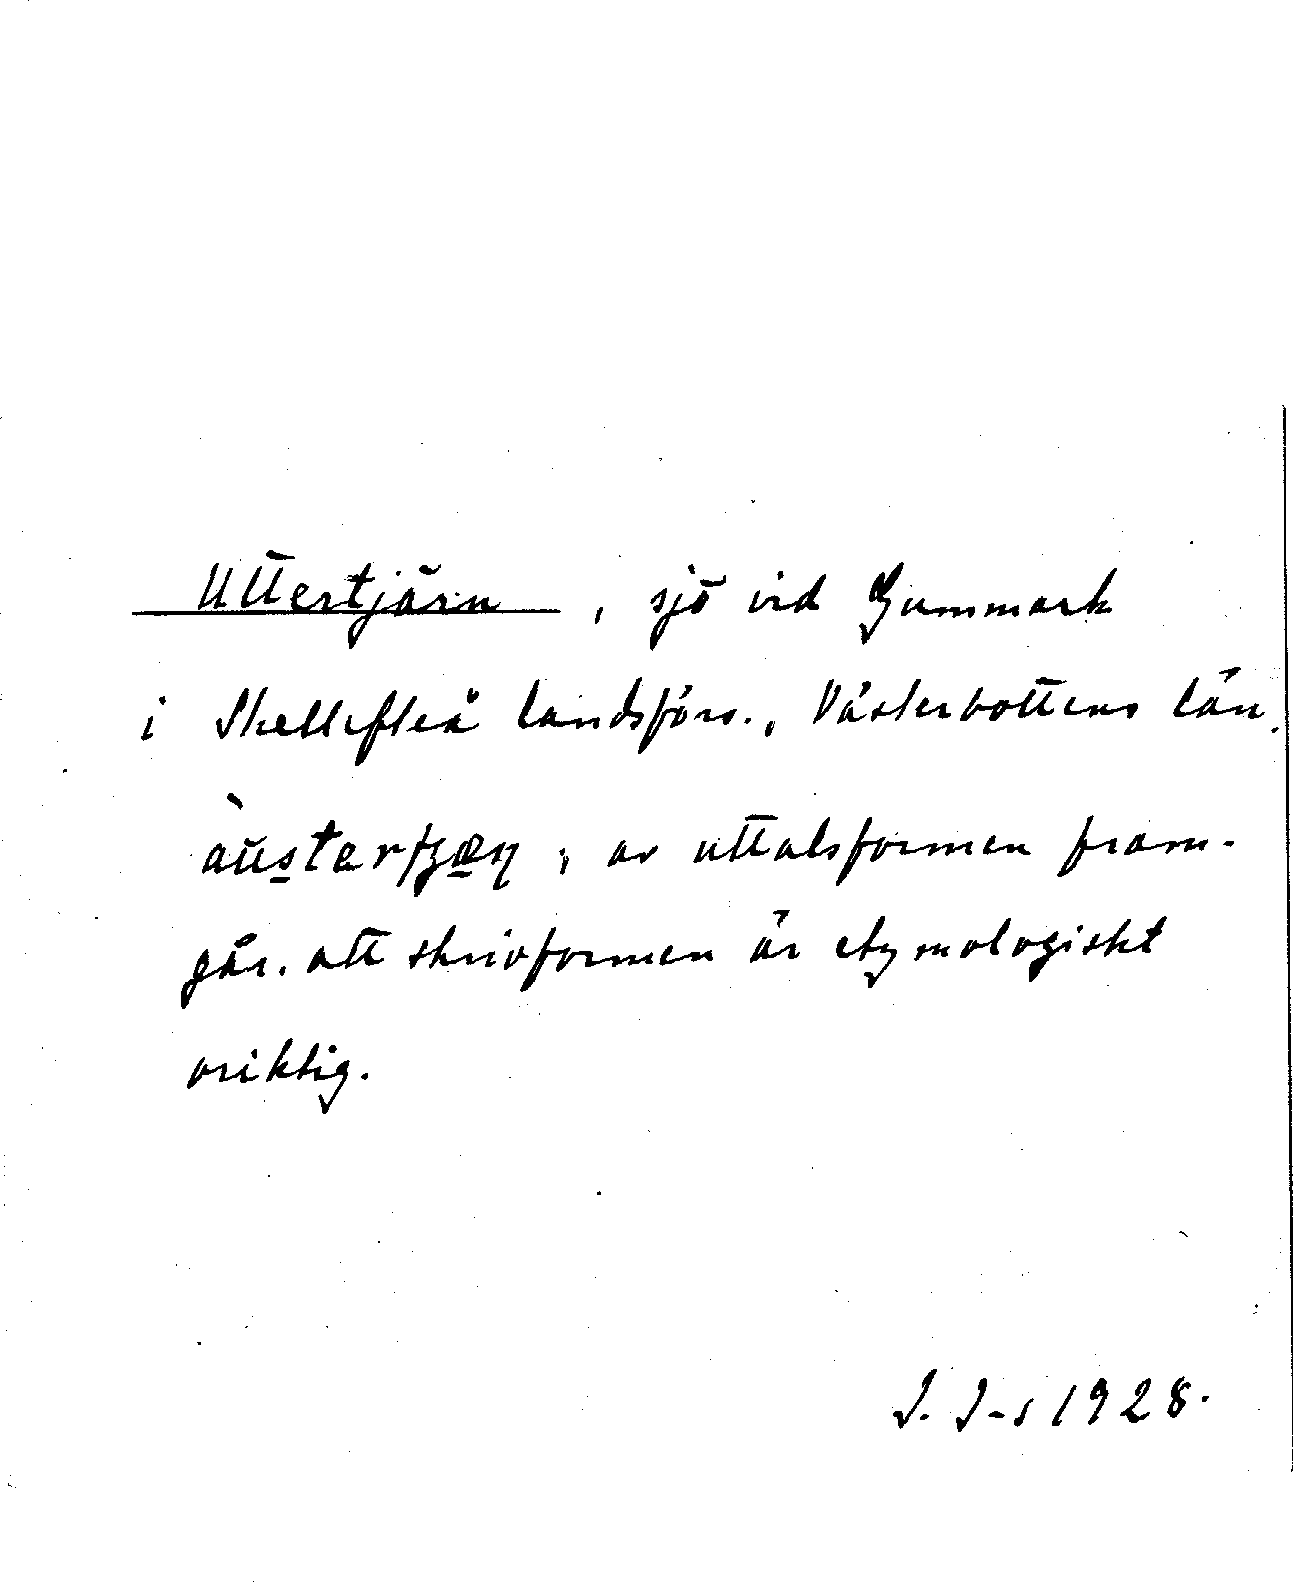 Uttertjärn, sjö vid Gummark
i Skellefteå landsförs., Västerbottens län.
; av uttalsformen fram-
går. att skrivformen är etymologiskt
oriktig.
J. J-s 1928.